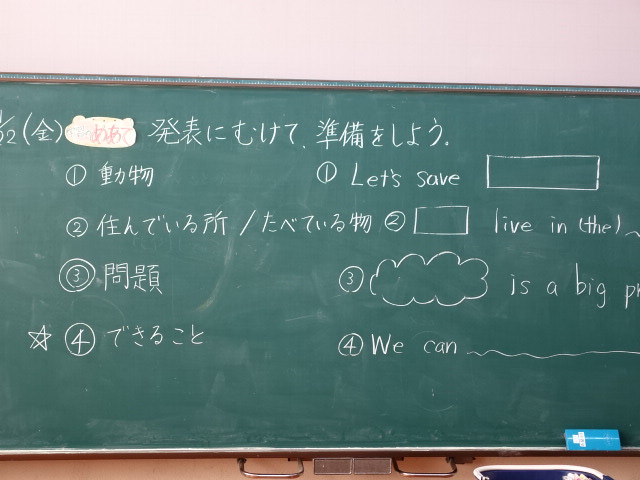 22(金) めあて 発表にむけて、準備をしよう。
① 動物
② 住んでいる所 / たべている物
③ 問題
☆ ④ できること
① Let's save
② live in (the)
③ is a big
④ We can